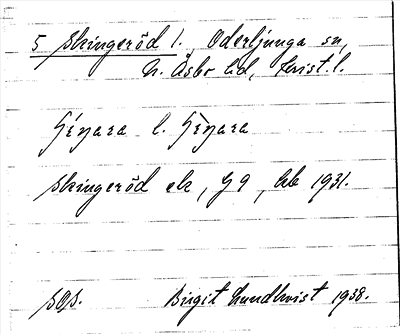 5 Skingeröd 1. Oderljunga sn,
N. Åsbo hd, Krist. l.
l.
Skingeröd ek, G 9, kb 1931.
SOS. Birgit Lundkvist 1938.